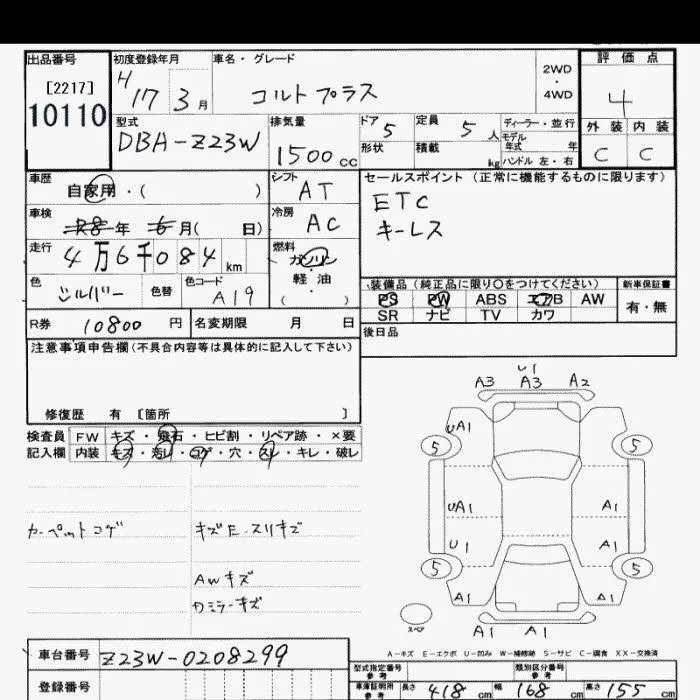 出品番号
[2217]
10110
初度登録年月
H17年 3月
車名・グレード
コルトプラス
2WD
・
4WD
評価点
4
外装 内装
C C
型式
DBA-Z23W
排気量
1500cc
ドア
5
形状
定員
5人
積載
kg
ディーラー・並行
モデル年式 年
ハンドル 左・右
車歴
自家用・( )
シフト
AT
車検
R8年 6月( 日)
冷房
AC
走行
4万6千084km
燃料
ガソリン
・
軽油
( )
色
シルバー
色替
色コード
A19
R券 10800円
名変期限 月 日
セールスポイント (正常に機能するものに限ります)
ETC
キーレス
装備品 (純正品に限り〇をつけてください)
PS PW ABS エアB AW
SR ナビ TV カワ
新車保証書
有・無
後日品
注意事項申告欄(不具合内容等は具体的に記入して下さい)
修復歴 有 [箇所 ]
検査員
記入欄
FW キズ・飛石・ヒビ割・リペア跡・×要
内装 キズ・汚レ・コゲ・穴・スレ・キレ・破レ
カーペットコゲ
キズE.スリキズ
AWキズ
カミラーキズ
U1
A3 A3 A2
UA1
5 5
UA1 A1
U1 A1
5 5
A1 A1
スペア
A1 A1
A-キズ E-エクボ U-凹み W-補修跡 S-サビ C-腐食 XX-交換済
車台番号 Z23W-0208299
登録番号
型式指定番号
参考
類別区分番号
参考
車庫証明用
参考
長さ 418cm 幅 168cm 高さ 155cm